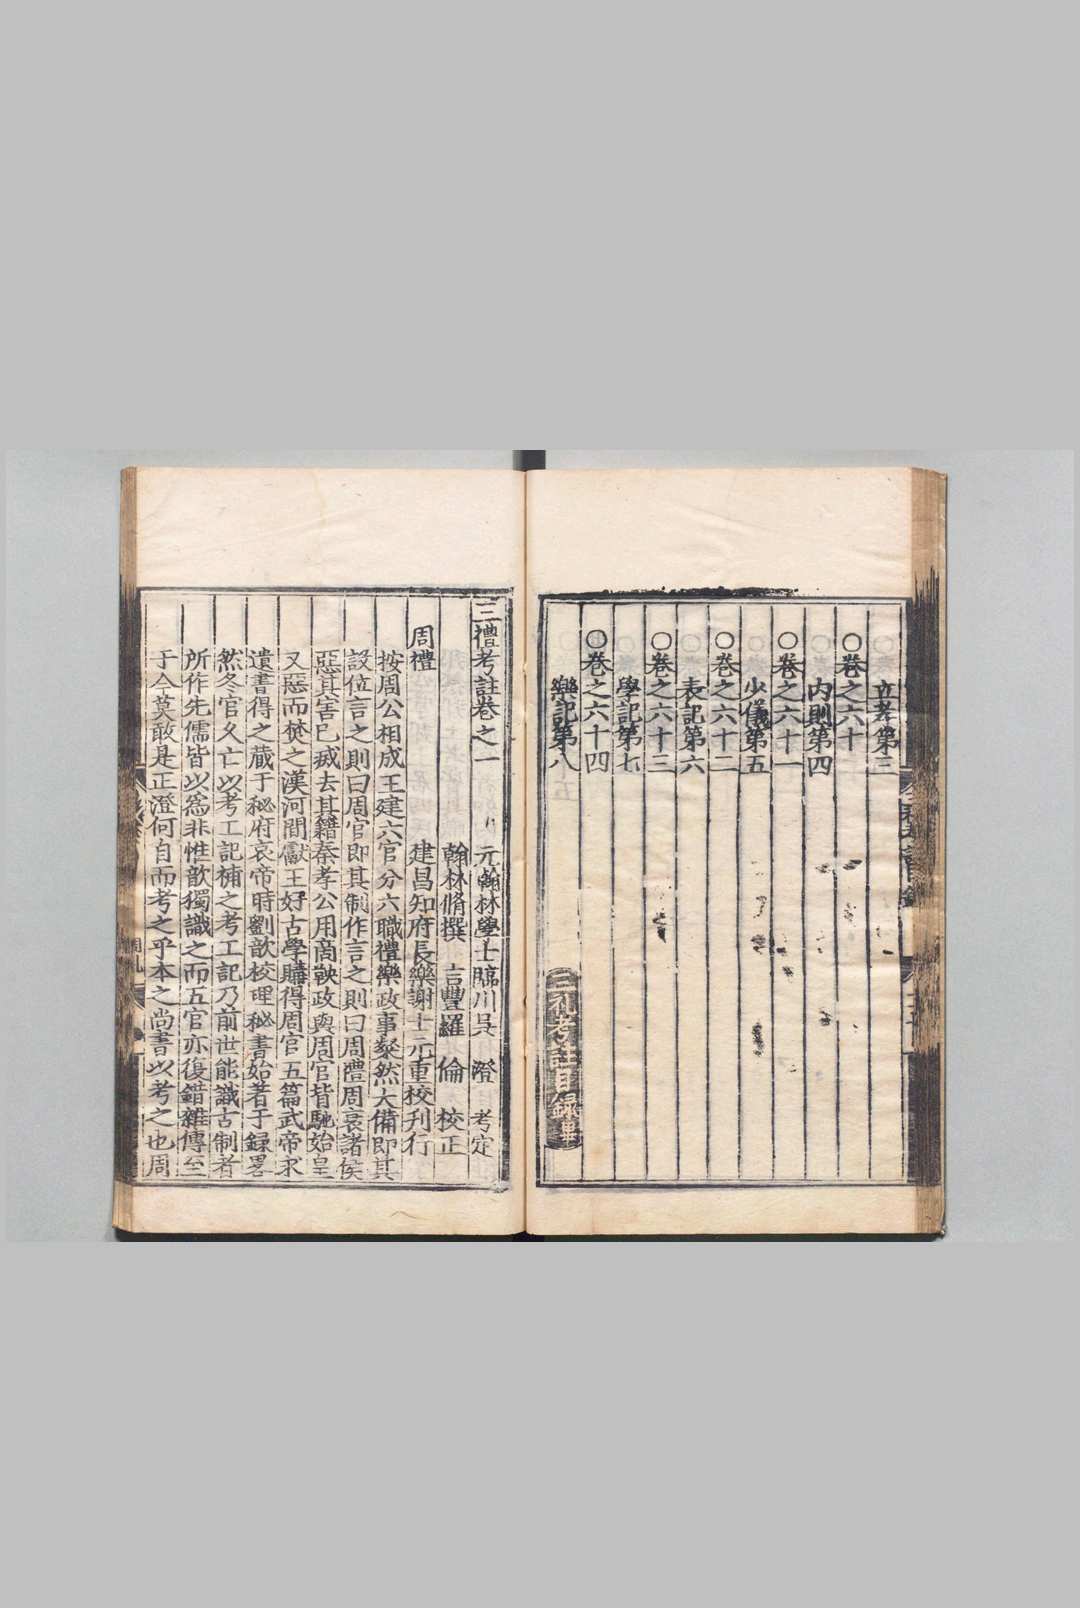 立孝第三
〇卷之六十
内則第四
〇卷之六十一
少儀第五
〇卷之六十二
表記第六
〇卷之六十三
學記第七
〇卷之六十四
樂記第八
三礼考註目録畢
三禮考註卷之一
元翰林學士臨川吳　澄　考定
翰林脩撰　吉豐羅　倫　校正
周禮　建昌知府長樂謝士元重校刊行
按周公相成王建六官分六職禮樂政事粲然大備即其
設位言之則曰周官即其制作言之則曰周禮周衰諸侯
惡其害己㓕去其籍秦孝公用商鞅政與周官背馳始皇
又惡而焚之漢河間獻王好古學購得周官五篇武帝求
遺書得之藏于秘府哀帝時劉歆校理秘書始著于録畧
然冬官久亡以考工記補之考工記乃前世能識古制者
所作先儒皆以爲非惟歆獨識之而五官亦復錯雜傳至
于今莫敢是正澄何自而考之乎本之尚書以考之也周